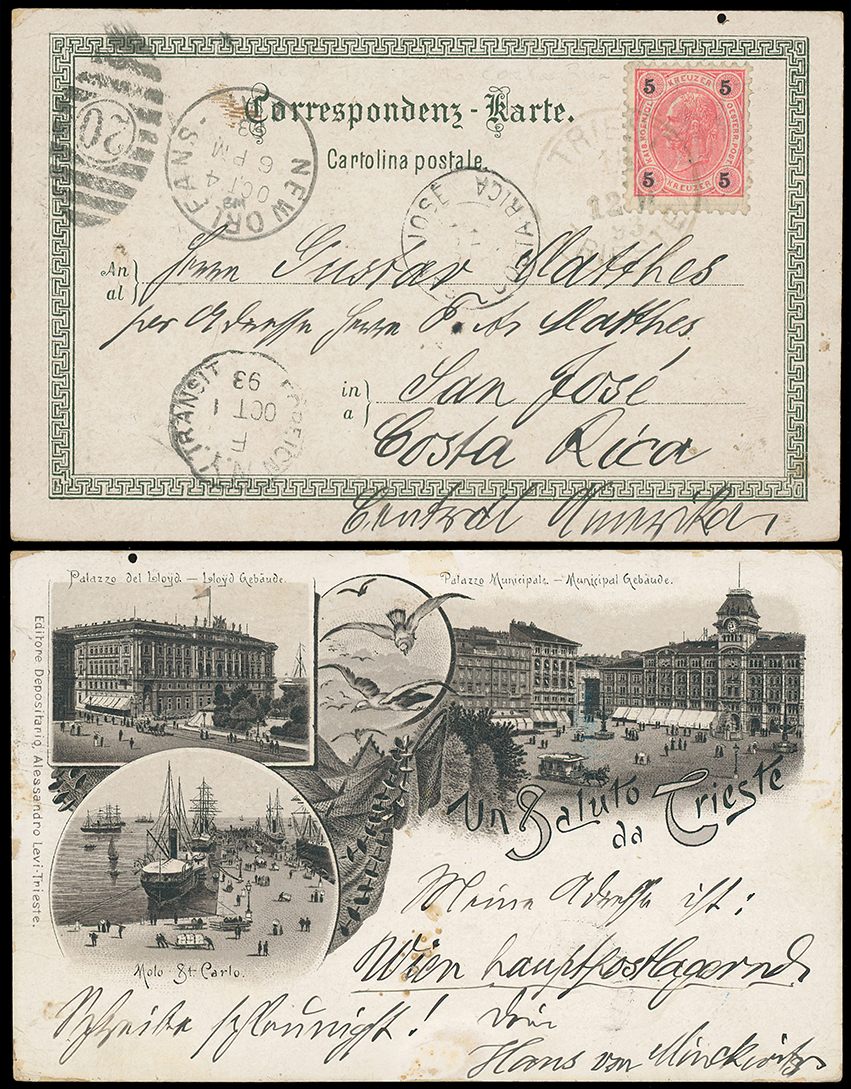 Correspondenz-Karte.
Cartolina postale.
20
NEW ORLEANS.
OCT 4
6 PM
93
5 KREUZER 5
KAIS. KOENIGL. OESTERR. POST
5 KREUZER 5
TRIESTE
12
93
TRIESTE
JOSE
RICA
An
al
Herrn Gustav Matthes
per Adresse Herrn F. A. Matthes
in
a
San José
Costa Rica
Central Amerika,
N.Y. TRANSIT
FOREIGN
OCT 1
F
93
Palazzo del Lloyd — Lloyd Gebäude.
Palazzo Municipale. — Municipal Gebäude.
Editore Depositario, Alessandro Levi-Trieste.
Un Saluto
da Trieste
Molo St. Carlo.
Meine Adresse ist:
Wien hauptpostlagernd
Schreibe schleunigst!
Dein
Hans von